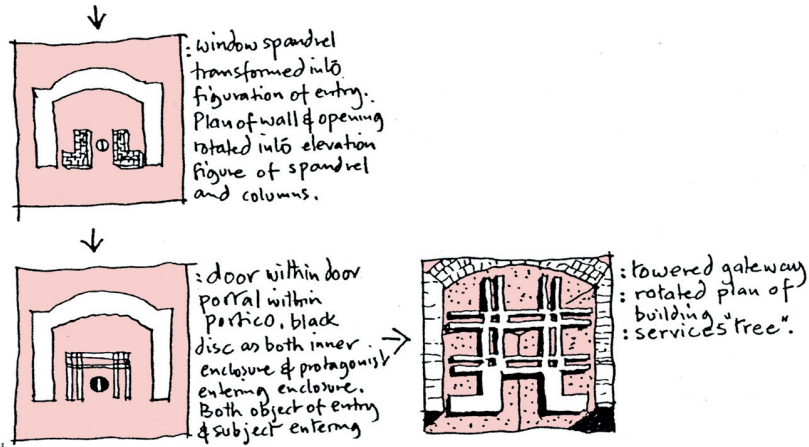 : window spandrel
transformed into
figuration of entry.
Plan of wall & opening
rotated into elevation
figure of spandrel
and columns.
: door within door
portal within
portico. black
disc as both inner
enclosure & protagonist
entering enclosure.
Both object of entry
& subject entering
: towered gateway
: rotated plan of
building
: services "tree".